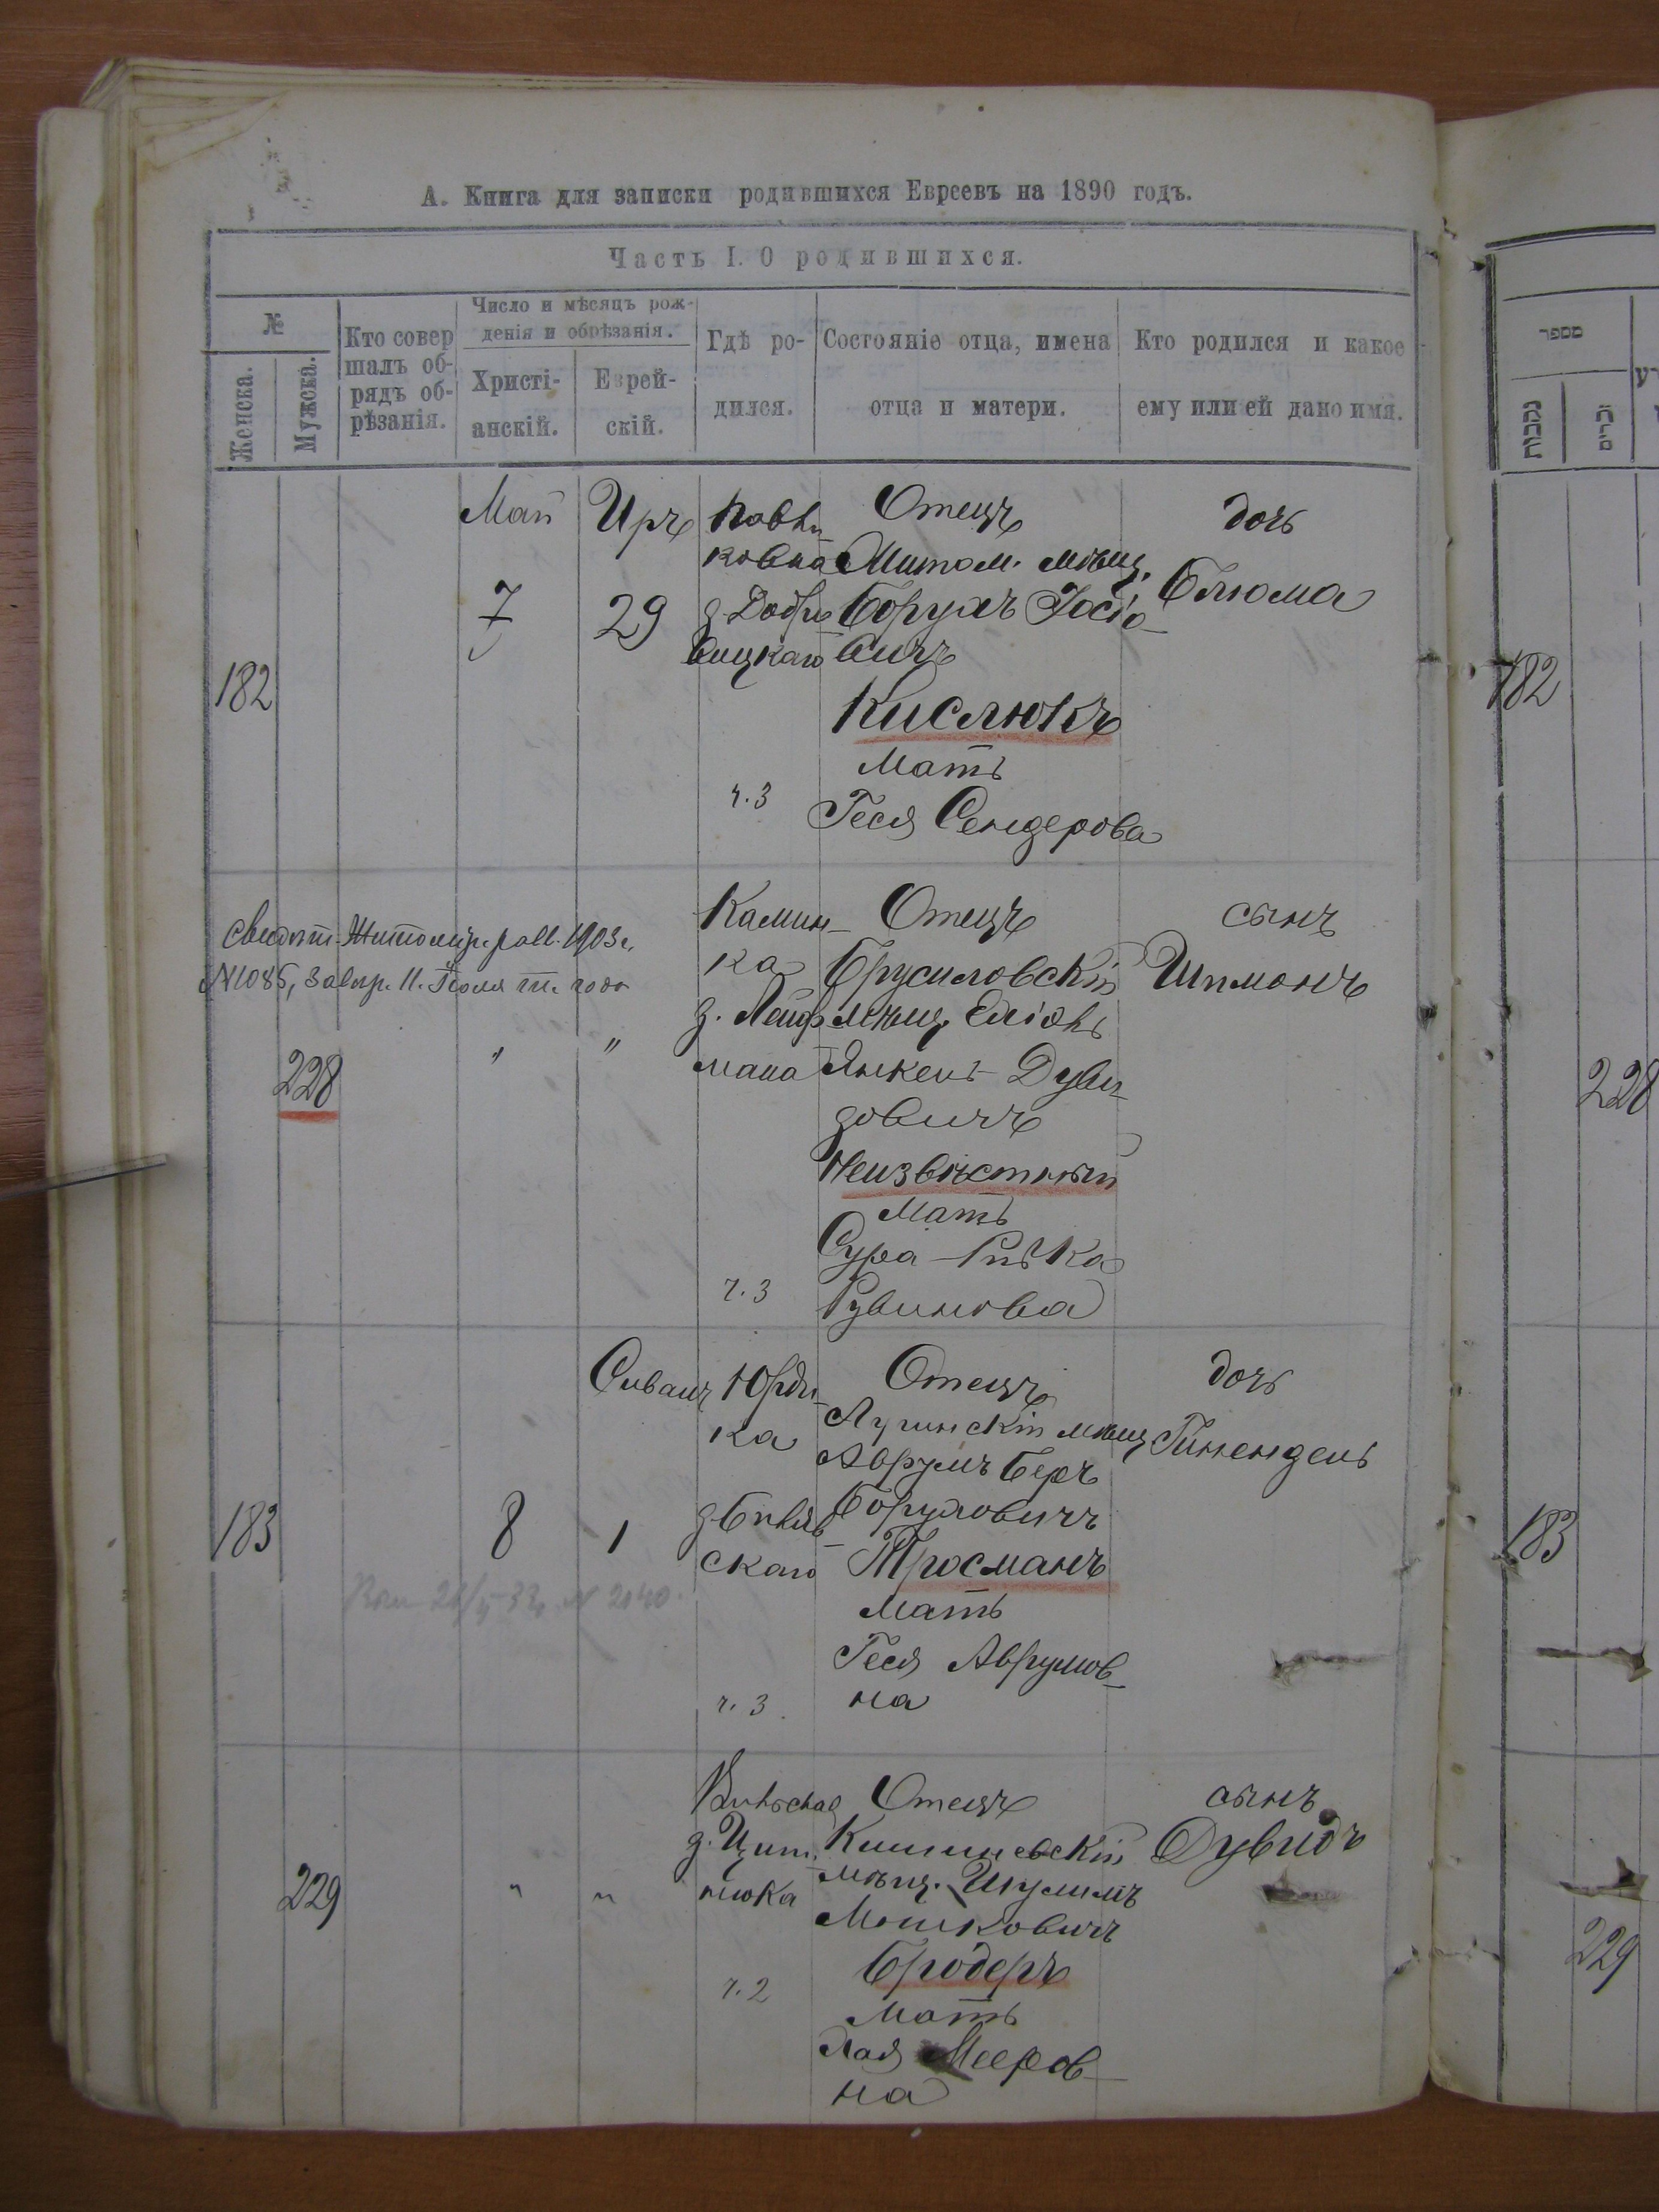 А. Книга для записки родившихся Евреевъ на 1890 годъ.
Часть I. О родившихся.
№
Женска.
Мужска.
Кто совер
шалъ об-
рядъ об-
рѣзанія.
Число и мѣсяцъ рож-
денія и обрѣзанія.
Христі-
анскій.
Еврей-
скій.
Гдѣ ро-
дился.
Состояніе отца, имена
отца и матери.
Кто родился и какое
ему или ей дано имя.
182
Май
7
Иръ
29
ч. 3
Отецъ
Житом. мѣщ.
Борухъ Іосіо-
вичъ
Кислюкъ
Мать
Геся Сендерова
дочь
Блюма
Свидѣт. Житомир. равв. 1903 г.
№ 1085, завѣр. 11. Іюля т. года
228
"
"
Камин-
ка
д.
мана
ч. 3
Отецъ
Брусиловскій
мѣщ.
Янкель Дуви-
довичъ
Неизвѣстный
Мать
Сура-Ривка
Рувинова
сынъ
Шимонъ
183
8
Сиванъ
1
Юрди-
ка
скаго
ч. 3.
Отецъ
Лугинскій мѣщ
Аврумъ Беръ
Боруховичъ
Тросманъ
Мать
Геся Аврумов-
на
дочь
Гинендель
№ 2040.
229
"
"
д. Цип.
нюка
ч. 2
Отецъ
Кишиневскій
мѣщ. Шулимъ
Мошковичъ
Бродеръ
Мать
Хая Мееров-
на
сынъ
Дувидъ
מספר
נקבות
זכרים
182
228
183
229